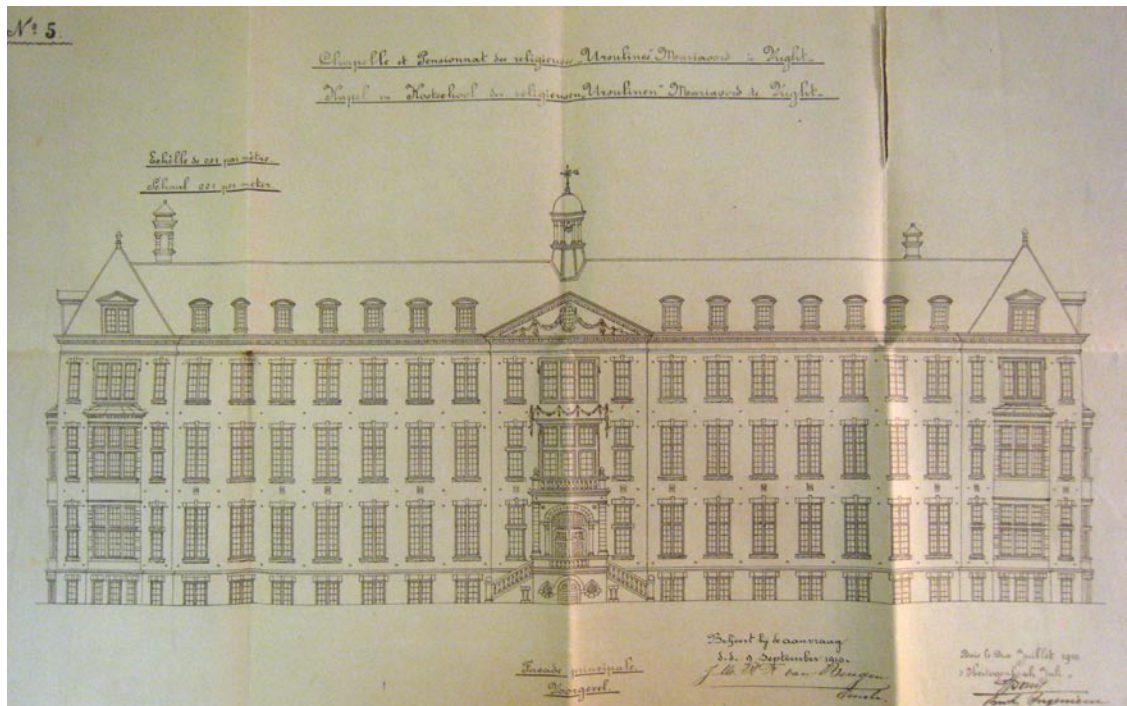 Nº 5.
Chapelle et Pensionnat des religieuses „Ursulines" Mariaoord à Vught.
Kapel en Kostschool der religieusen „Ursulinen" Mariaoord te Vught.
Echèlle de 0.01 par mètre.
Schaal 0.01 per meter.
Façade principale.
Voorgevel.
Behoort bij de aanvraag
d.d. 9 September 1910.
van
Bois le Duc Juillet 1910
's Hertogenbosch Juli